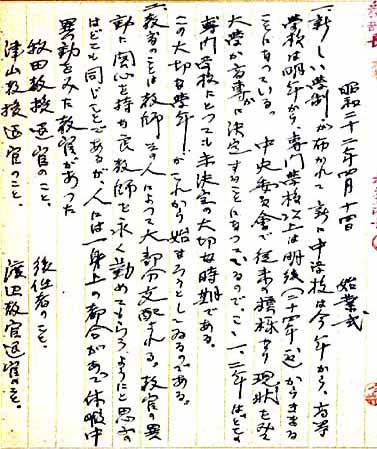 昭和二十二年四月十四日　始業式
一、新しい学制が布かれて新に中学校は今年から、高等
学校は明年から、専門学校以上は明後（二十四年迄）からきまる
ことになっている。中央委員会で従来の積極的現状をみて
大学か高専か決定することになっているので、こゝ一、二年はどの
専門学校にとっても未決定の大切な時期である。
この大切な学年がこれから始まろうとしてゐるのである。
二、教育のことは教師その人によって大部分支配される。教官の異
動に関心を持ち良教師を永く勤めてもらうようにと思うの
はどこも同じことであるが、人には一身上の都合があって休暇中
異動をみた教官があった
牧田教授退官のこと、後任者のこと、
津山教授退官のこと、渡辺教官退官のこと。